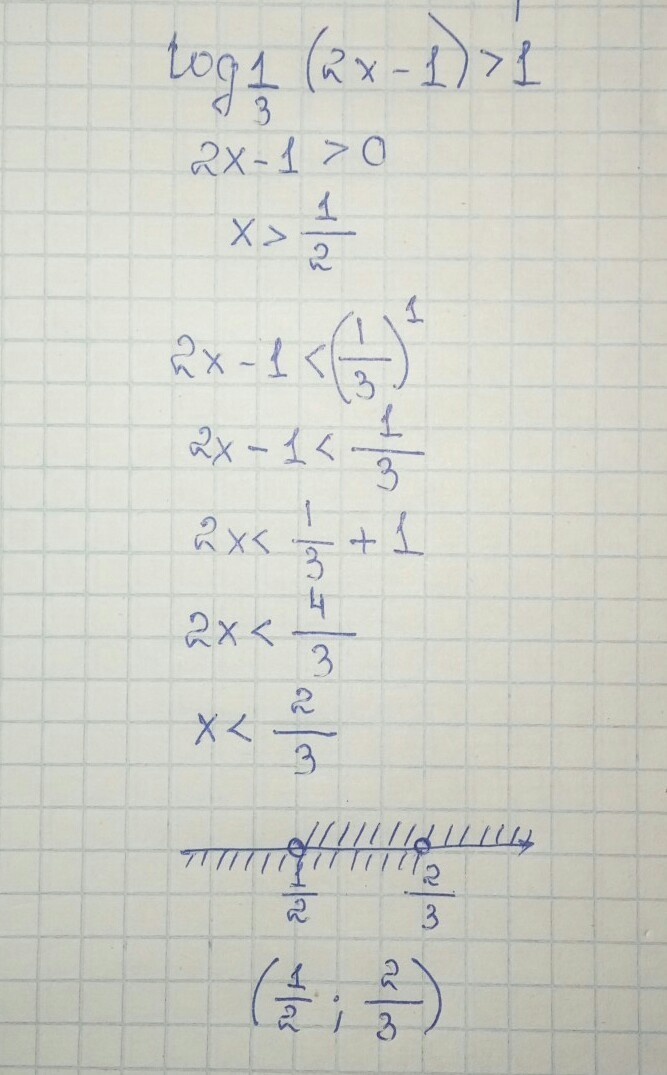 log 1/3 (2x-1) > 1
2x-1 > 0
x > 1/2
2x-1 < (1/3)^1
2x-1 < 1/3
2x < 1/3 + 1
2x < 4/3
x < 2/3
1/2 2/3
(1/2 ; 2/3)